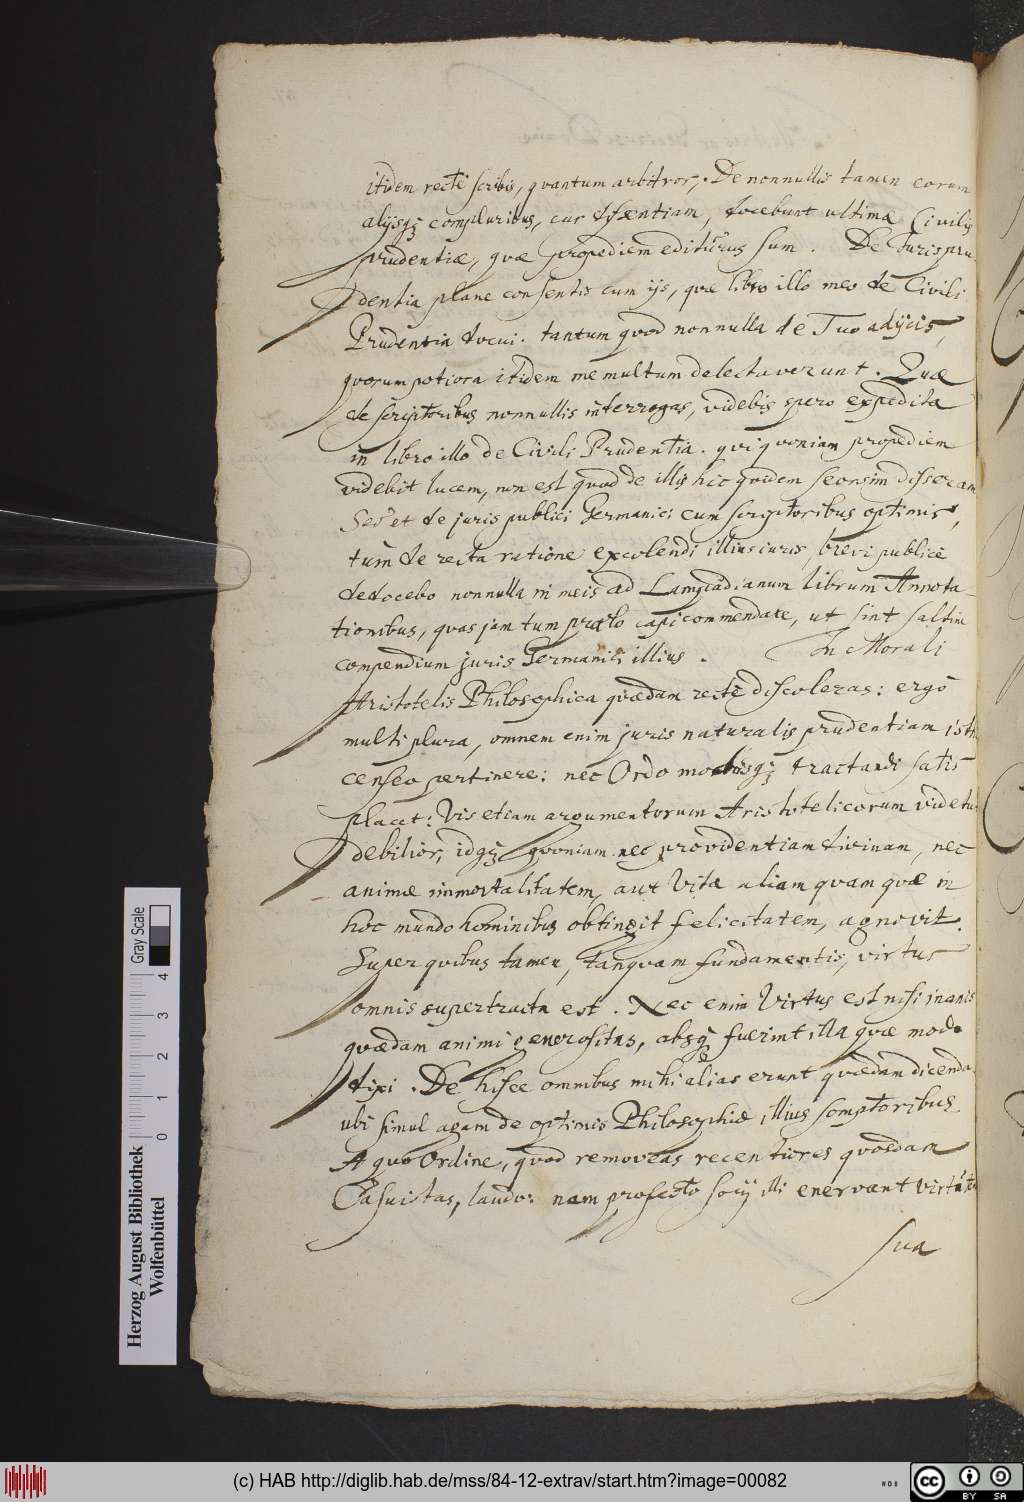 itidem rectè scribis, quantum arbitror. De nonnullis tamen eorum
alijsq; compluribus, cur dissentiam, docebunt ultimæ Civilis
prudentiæ, quæ propediem editurus sum. De Jurispru-
dentia plane consentis cum ijs, quæ libro illo meo de Civili
Prudentia docui. tantum quod nonnulla de Tuo adijcis,
quorum potiora itidem me multum delectaverunt. Quæ
de scriptoribus nonnullis interrogas, videbis spero expedita
in libro illo de Civili Prudentia. qui quoniam propediem
videbit lucem, non est quod de illis hic quidem seorsim disseram
Sed et de juris publici Germanici cum scriptoribus optimis,
tùm de recta ratione excolendi illius iuris, brevi publicè
dedocebo nonnulla in meis ad Lampadianum librum Annota-
tionibus, quas jam tum prælo capi commendare, ut sint saltim
compendium juris Germanici illius. In Morali
Aristotelis Philosophica quædam rectè : ergò
multi plura, omnem enim juris naturalis prudentiam
censeo pertinere: nec Ordo modusq; tractandi satis
placet: Vis etiam argumentorum Aristotelicorum videtur
debilior, idq; quoniam nec providentiam divinam, nec
animæ immortalitatem, aut Vitæ aliam quam quæ in
hoc mundo hominibus obtingit felicitatem, agnovit.
Super quibus tamen, tanquam fundamentis, virtus
omnis supertracta est. Nec enim Virtus est nisi inanis
quædam animi generositas, absq; fuerint illa quæ modo
dixi. De hisce omnibus mihi alias erunt quædam dicenda
ubi simul agam de optimis Philosophiæ illius scriptoribus
A quo Ordine, quod removeas recentiores quosdam
Casuistas, laudo: nam profecto socij illi enervant virtutem
sua
Herzog August Bibliothek
Wolfenbüttel
Gray Scale
0 1 2 3 4
(c) HAB http://diglib.hab.de/mss/84-12-extrav/start.htm?image=00082
cc BY SA